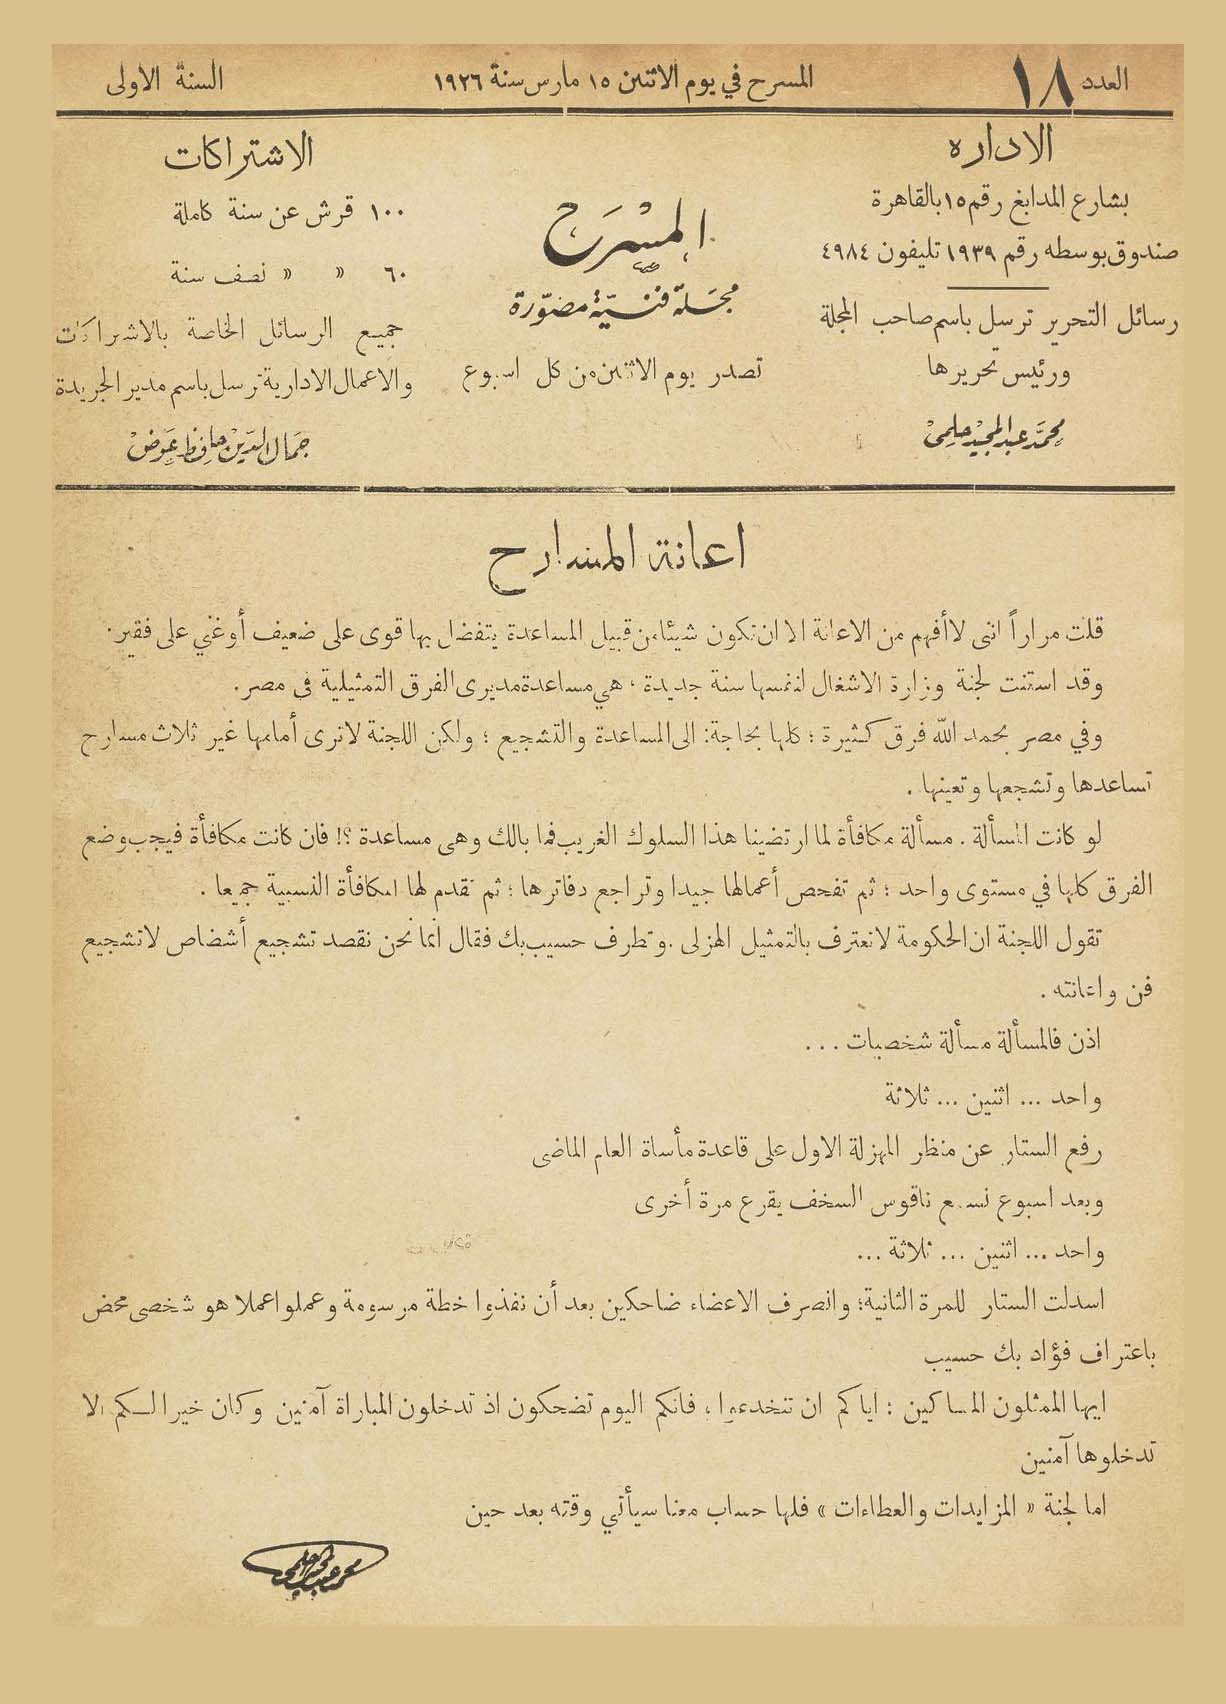 العدد ١٨
المسرح في يوم الاثنين ١٥ مارس سنة ١٩٢٦
السنة الاولى
الاداره
بشارع المدابغ رقم ١٥ بالقاهرة
صندوق بوسطه رقم ١٩٣٩ تليفون ٤٩٨٤
رسائل التحرير ترسل باسم صاحب المجلة
ورئيس تحريرها
محمد عبد المجيد حلمى
المسرح
مجلة فنية مصورة
تصدر يوم الاثنين من كل اسبوع
الاشتراكات
١٠٠ قرش عن سنة كاملة
٦٠ » » نصف سنة
جميع الرسائل الخاصة بالاشتراكات
والاعمال الادارية ترسل باسم مدير الجريدة
جمال الدين حافظ عوض
اعانة المسارح
قلت مراراً انى لا أفهم من الاعانة الا ان تكون شيئا من قبيل المساعدة يتفضل بها قوى على ضعيف أو غني على فقير.
وقد استنت لجنة وزارة الاشغال لنفسها سنة جديدة ، هي مساعدة مديرى الفرق التمثيلية فى مصر.
وفي مصر بحمد الله فرق كثيرة ؛ كلها بحاجة الى المساعدة والتشجيع ؛ ولكن اللجنة لا ترى أمامها غير ثلاث مسارح
تساعدها وتشجعها وتعينها .
لو كانت المسألة . مسألة مكافأة لما ارتضينا هذا السلوك الغريب فما بالك وهى مساعدة ؟! فان كانت مكافأة فيجب وضع
الفرق كلها في مستوى واحد ؛ ثم تفحص أعمالها جيدا وتراجع دفاترها ؛ ثم تقدم لها المكافأة النسبية جميعا .
تقول اللجنة ان الحكومة لا تعترف بالتمثيل الهزلى . وتطرف حسيب بك فقال انما نحن نقصد تشجيع أشخاص لا تشجيع
فن واعانته .
اذن فالمسألة مسألة شخصيات ...
واحد ... اثنين ... ثلاثة
رفع الستار عن منظر المهزلة الاول على قاعدة مأساة العام الماضى
وبعد اسبوع نسمع ناقوس السخف يقرع مرة أخرى
واحد ... اثنين ... ثلاثة ...
اسدلت الستار للمرة الثانية؛ وانصرف الاعضاء ضاحكين بعد أن نفذوا خطة مرسومة وعملوا عملا هو شخصى محض
باعتراف فؤاد بك حسيب
ايها الممثلون المساكين : اياكم ان تنخدعوا ، فانكم اليوم تضحكون اذ تدخلون المباراة آمنين وكان خيرا لكم الا
تدخلوها آمنين
اما لجنة « المزايدات والعطاءات » فلها حساب معنا سيأتي وقته بعد حين
محمد عبد المجيد حلمى